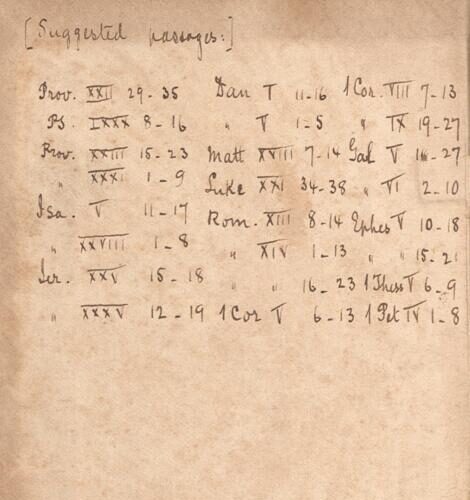 [Suggested passages:]
Prov. XXII 29-35
Ps. LXXX 8-16
Prov. XXIII 15-23
" XXXI 1-9
Isa. V 11-17
" XXVIII 1-8
Jer. XXV 15-18
" XXXV 12-19
Dan I 11-16
" V 1-5
Matt XVIII 7-14
Luke XXI 34-38
Rom. XIII 8-14
" XIV 1-13
" " 16-23
1 Cor V 6-13
1 Cor. VIII 7-13
" IX 19-27
Gal V 16-27
" VI 2-10
Ephes V 10-18
" " 15-21
1 Thess V 6-9
1 Pet IV 1-8